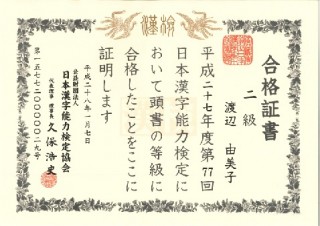 漢検
合格証書
二級
渡辺 由美子
平成二十七年度第77回
日本漢字能力検定に
おいて頭書の等級に
合格したことをここに
証明します
平成二十八年一月七日
公益財団法人
日本漢字能力検定協会
代表理事 理事長 久保浩史